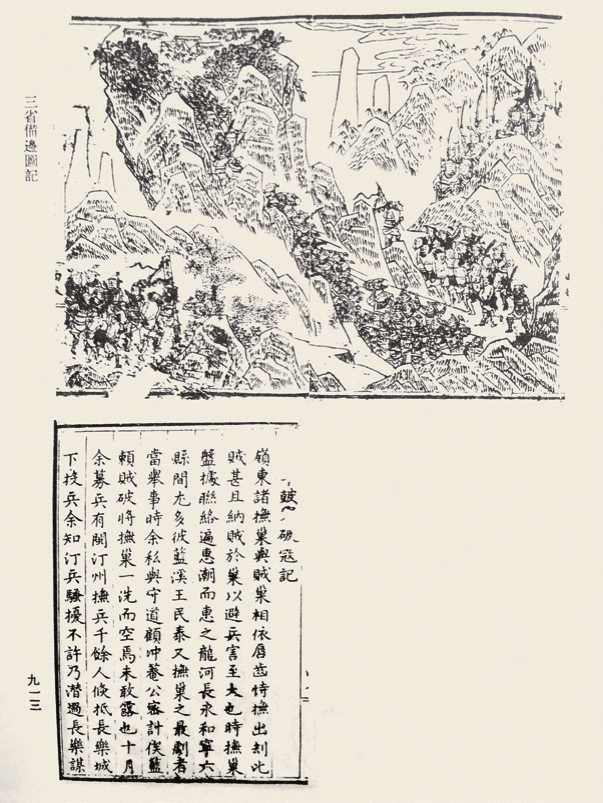 三省備邊圖記
破寇記
嶺東諸撫巢與賊巢相依唇齒恃撫出刦此
賊甚且納賊於巢以避兵害至大也時撫巢
盤據聯絡遍惠潮而惠之龍河長永和寧六
縣間尤多彼藍溪王民泰又撫巢之最劇者
當舉事時余私與守道顧冲菴公密計俟藍
賴賊破將撫巢一洗而空焉未敢露也十月
余募兵有閩汀州撫兵千餘人倏抵長樂城
下投兵余知汀兵騷擾不許乃潛過長樂謀
九一三